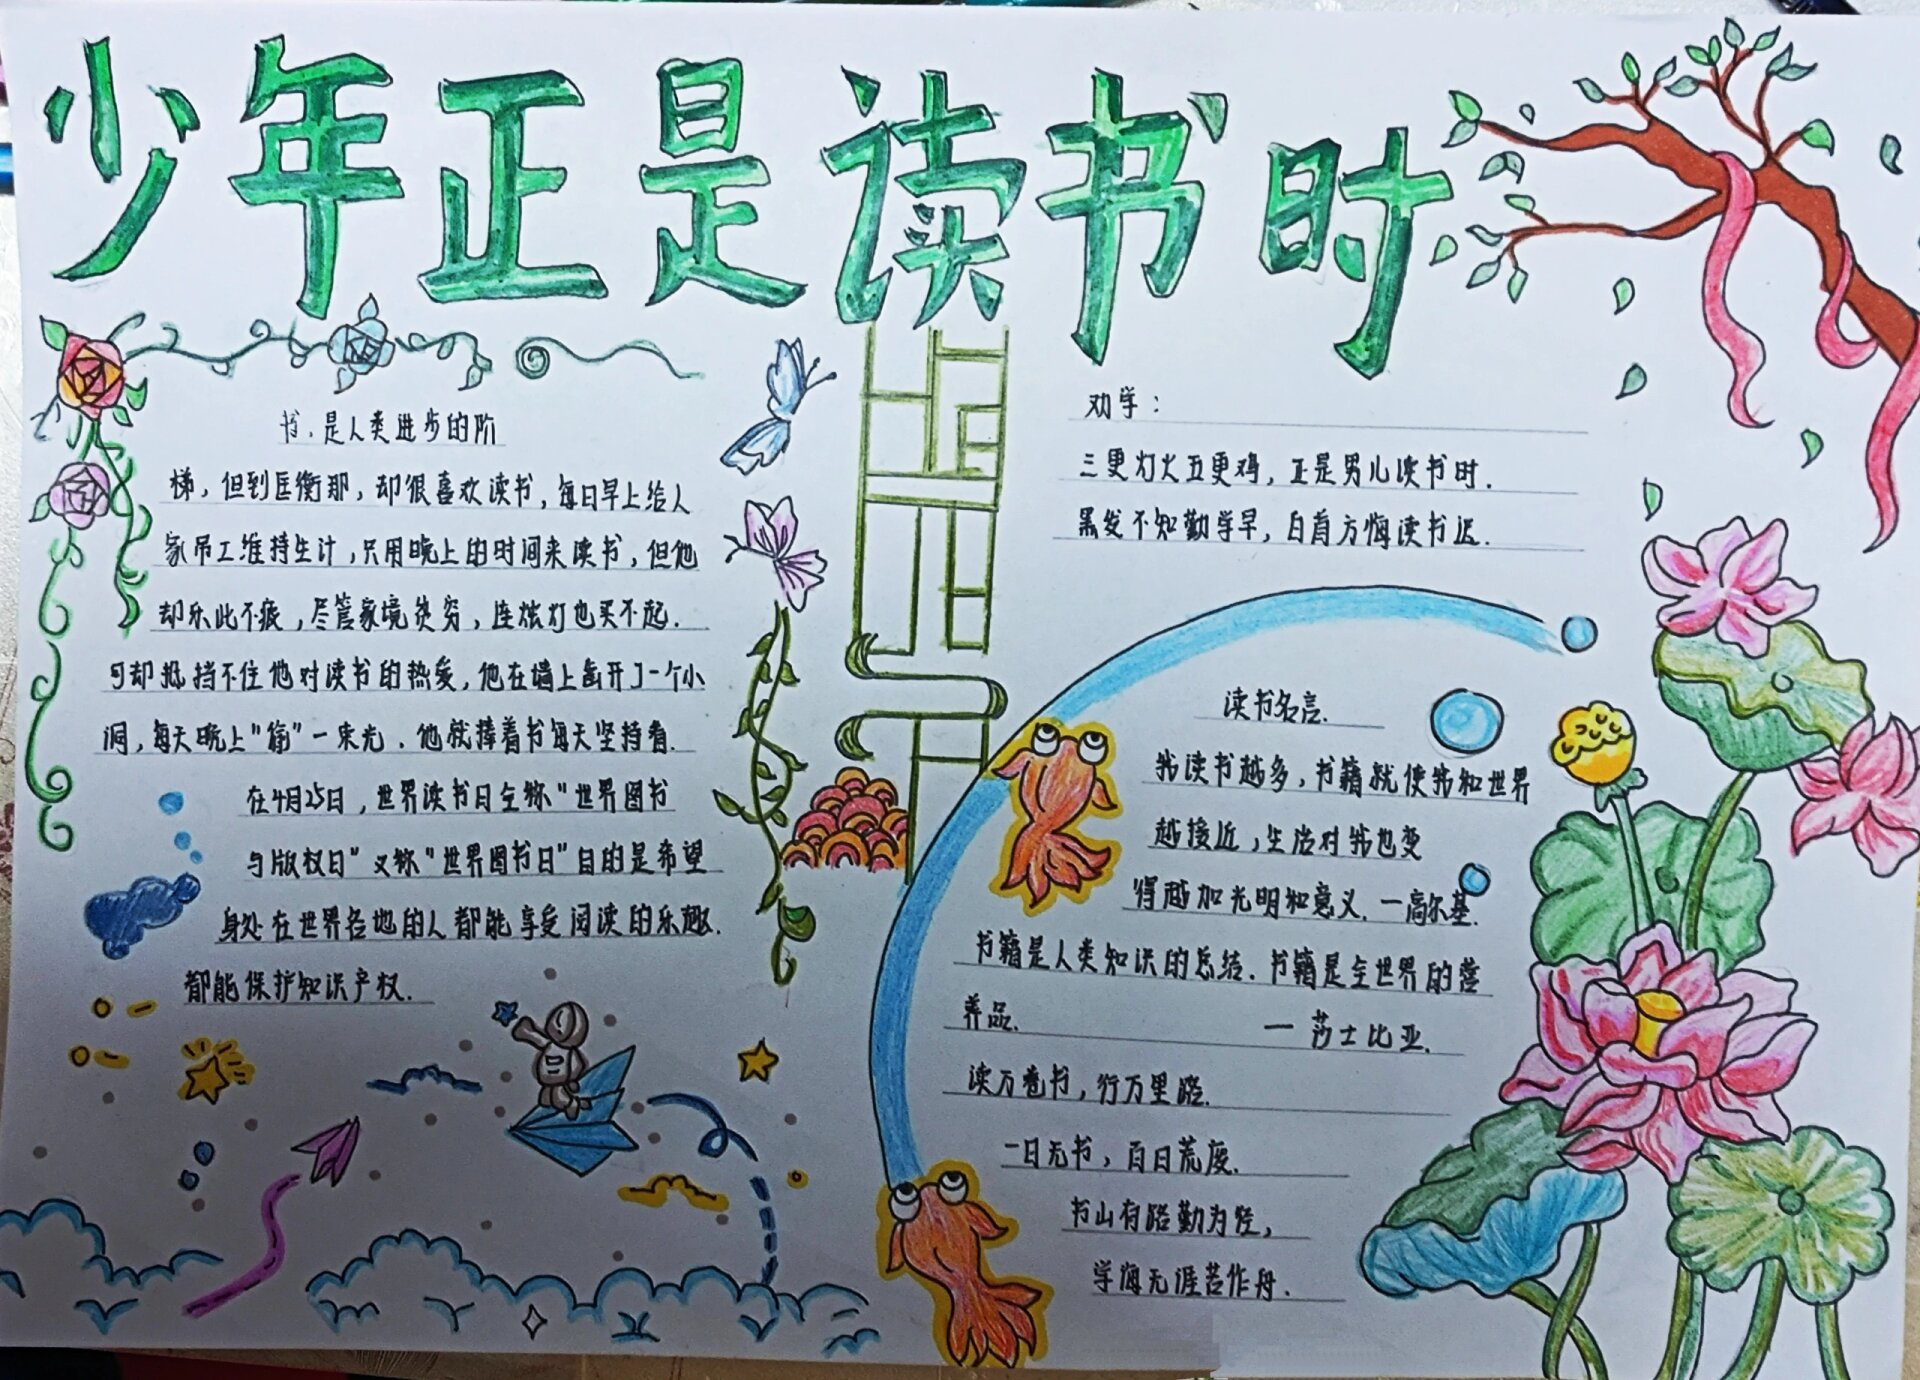 少年正是读书时
书,是人类进步的阶
梯,但到匡衡那,却很喜欢读书,每日早上给人
家帮工维持生计,只用晚上的时间来读书,但他
却乐此不疲,尽管家境贫穷,连烛灯也买不起.
可却抵挡不住他对读书的热爱,他在墙上凿开了一个小
洞,每天晚上"偷"一束光.他就捧着书每天坚持看.
在4月25日,世界读书日全称"世界图书
与版权日"又称"世界图书日"目的是希望
身处在世界各地的人都能享受阅读的乐趣.
都能保护知识产权.
劝学:
三更灯火五更鸡,正是男儿读书时.
黑发不知勤学早,白首方悔读书迟.
读书名言.
我读书越多,书籍就使我和世界
越接近,生活对我也变
得越加光明和意义.一高尔基.
书籍是人类知识的总结.书籍是全世界的营
养品.
一 莎士比亚.
读万卷书,行万里路.
一日无书,百日荒废.
书山有路勤为径,
学海无涯苦作舟.